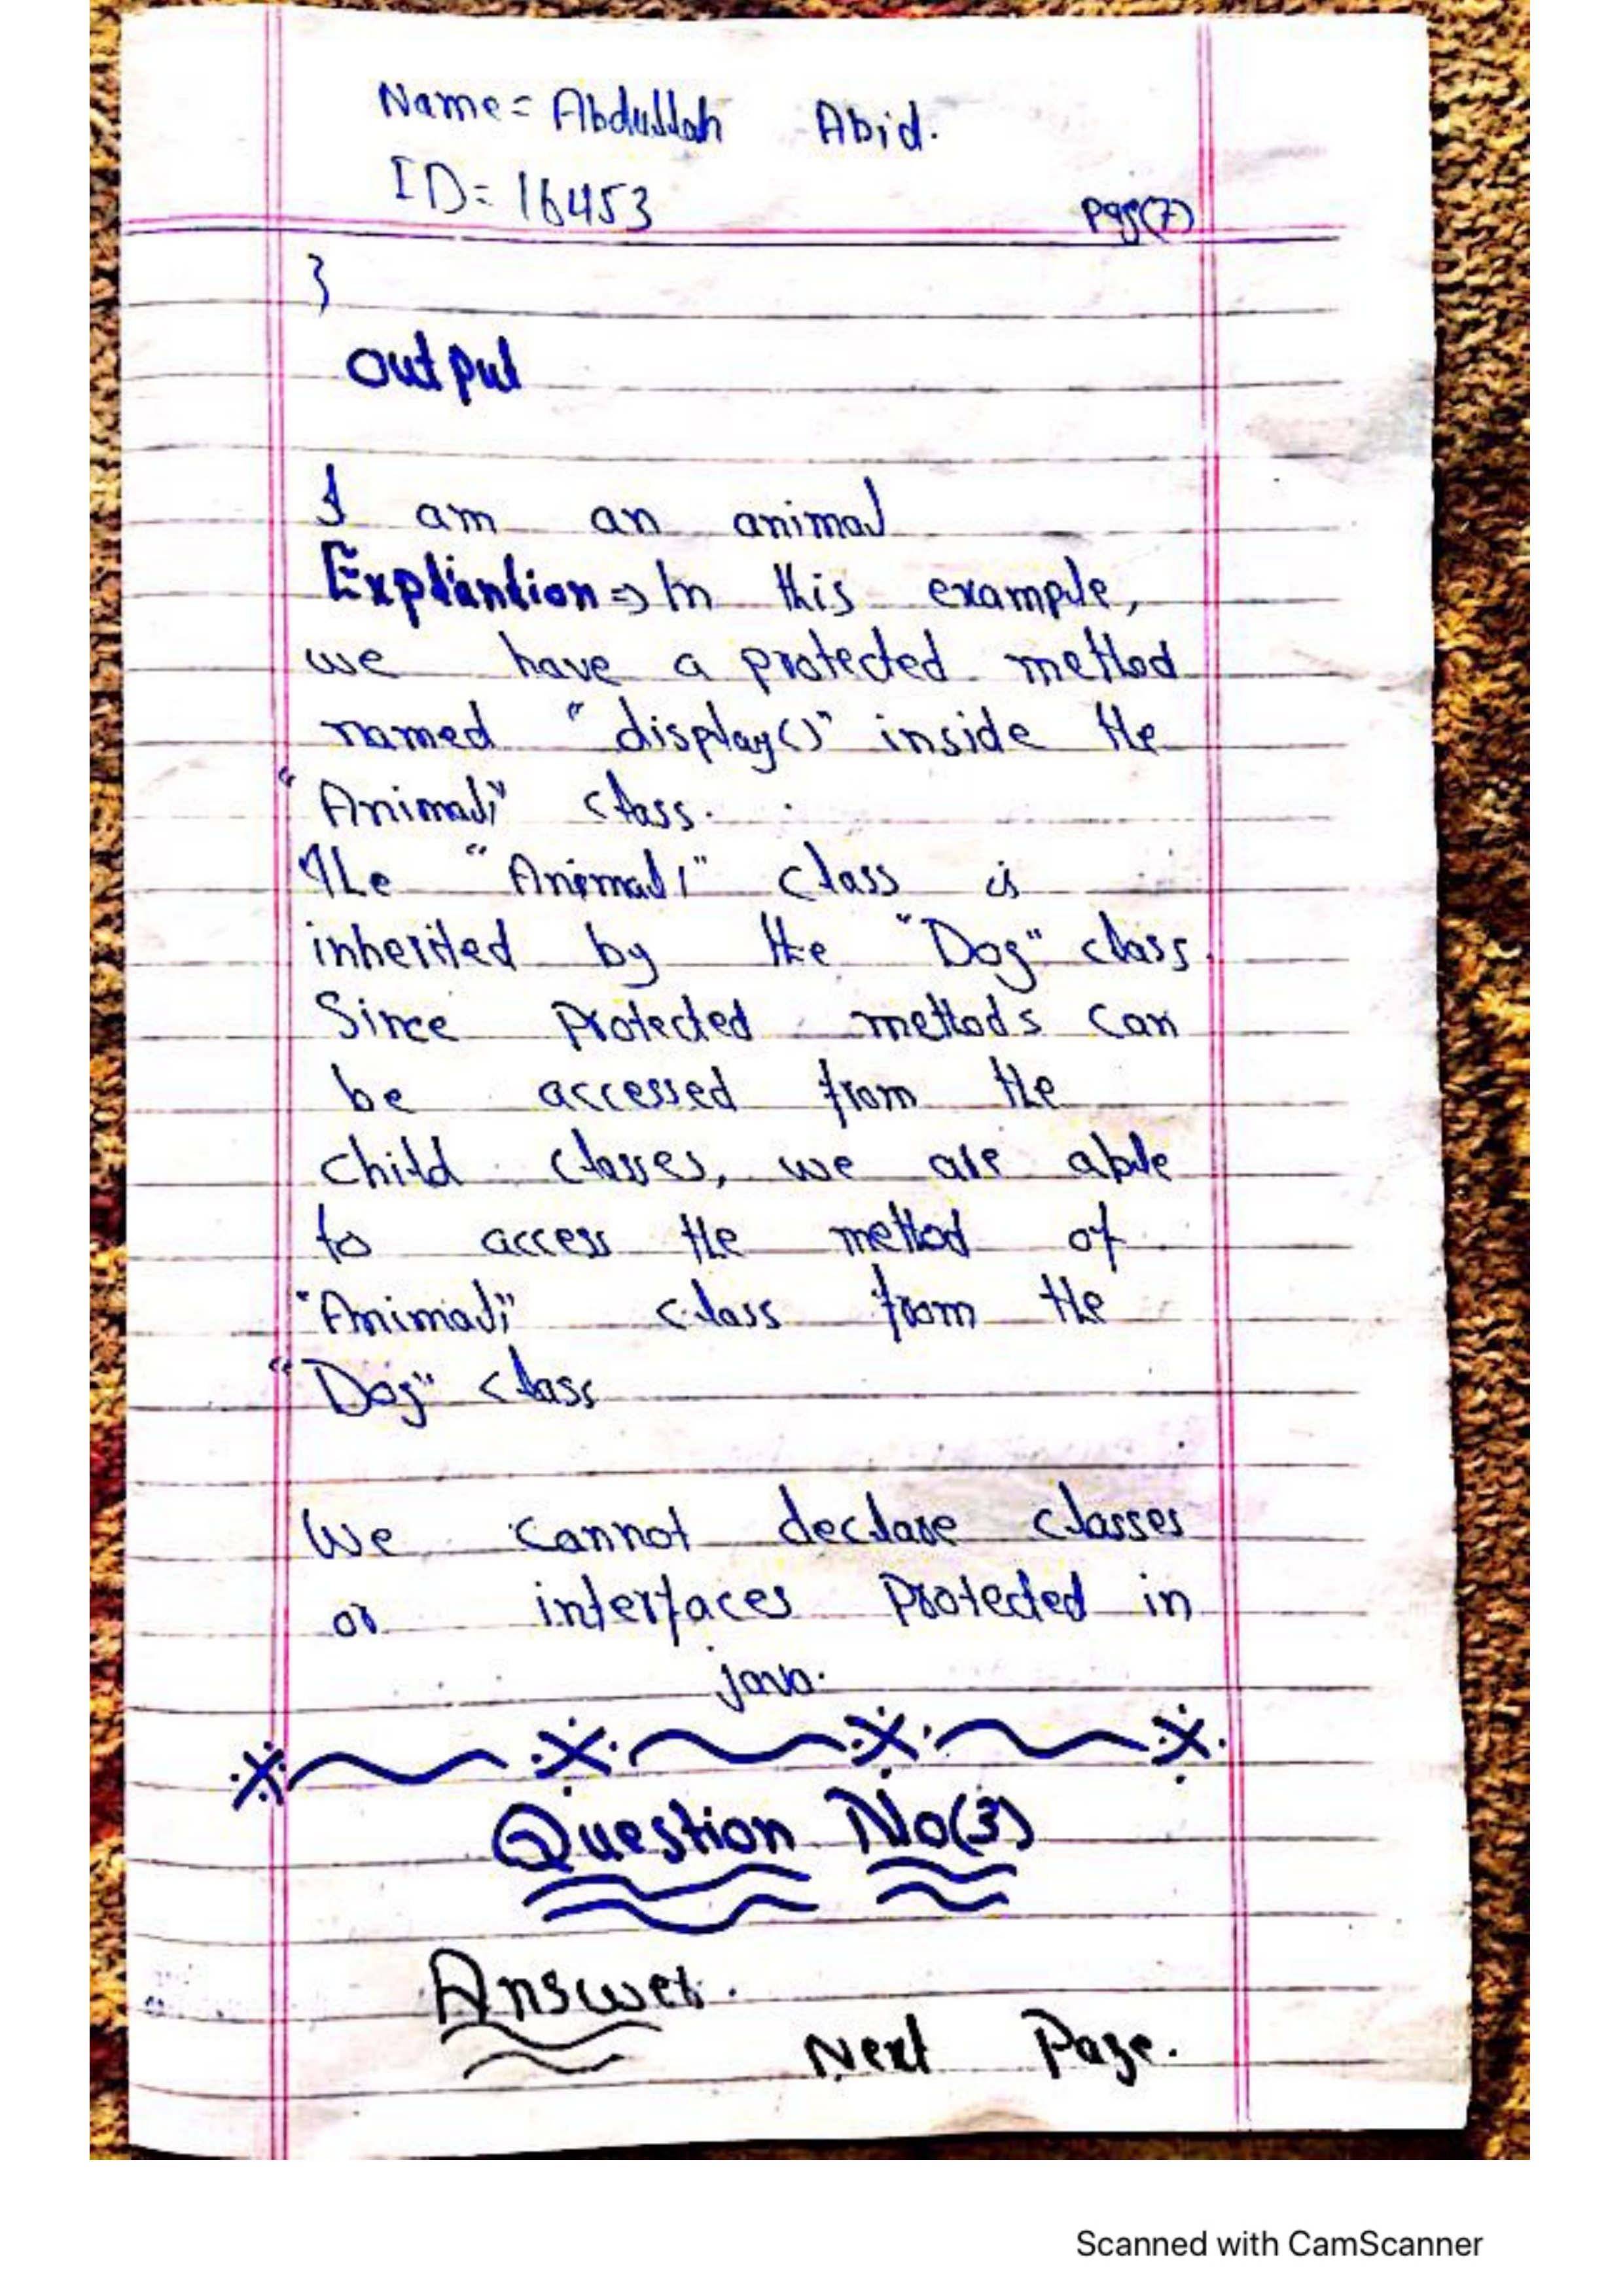 Name = Abdullah Abid.
ID = 16453
Pg(7)
}
output
I am an animal
Explantion => In this example,
we have a protected method
named "display()" inside the
"Animal1" class.
The "Animal1" class is
inherited by the "Dog" class.
Since Protected methods can
be accessed from the
child classes, we are able
to access the method of
"Animal1" class from the
"Dog" class
We cannot declare classes
or interfaces Protected in
java.
Question No(3)
Answer.
Next Page.
Scanned with CamScanner